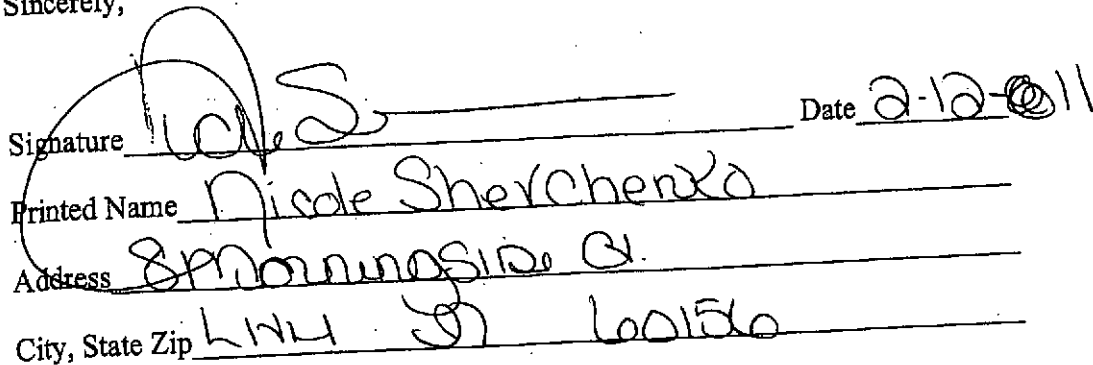 Sincerely,
Signature Date 2-12-11
Printed Name Nicole Shevchenko
Address 8 Morningside Ct.
City, State Zip LITH IL 60156